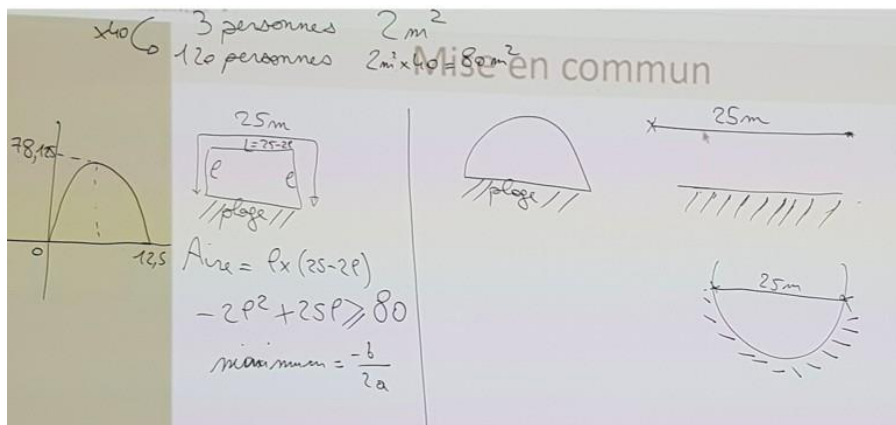 x40 3 personnes 2m²
120 personnes 2m²x40=80m²
Mise en commun
78,125
0
12,5
25m
L=25-2l
l
l
plage
Aire = l x (25-2l)
-2l² + 25l ⩾ 80
maximum = -b/2a
plage
25m
25m